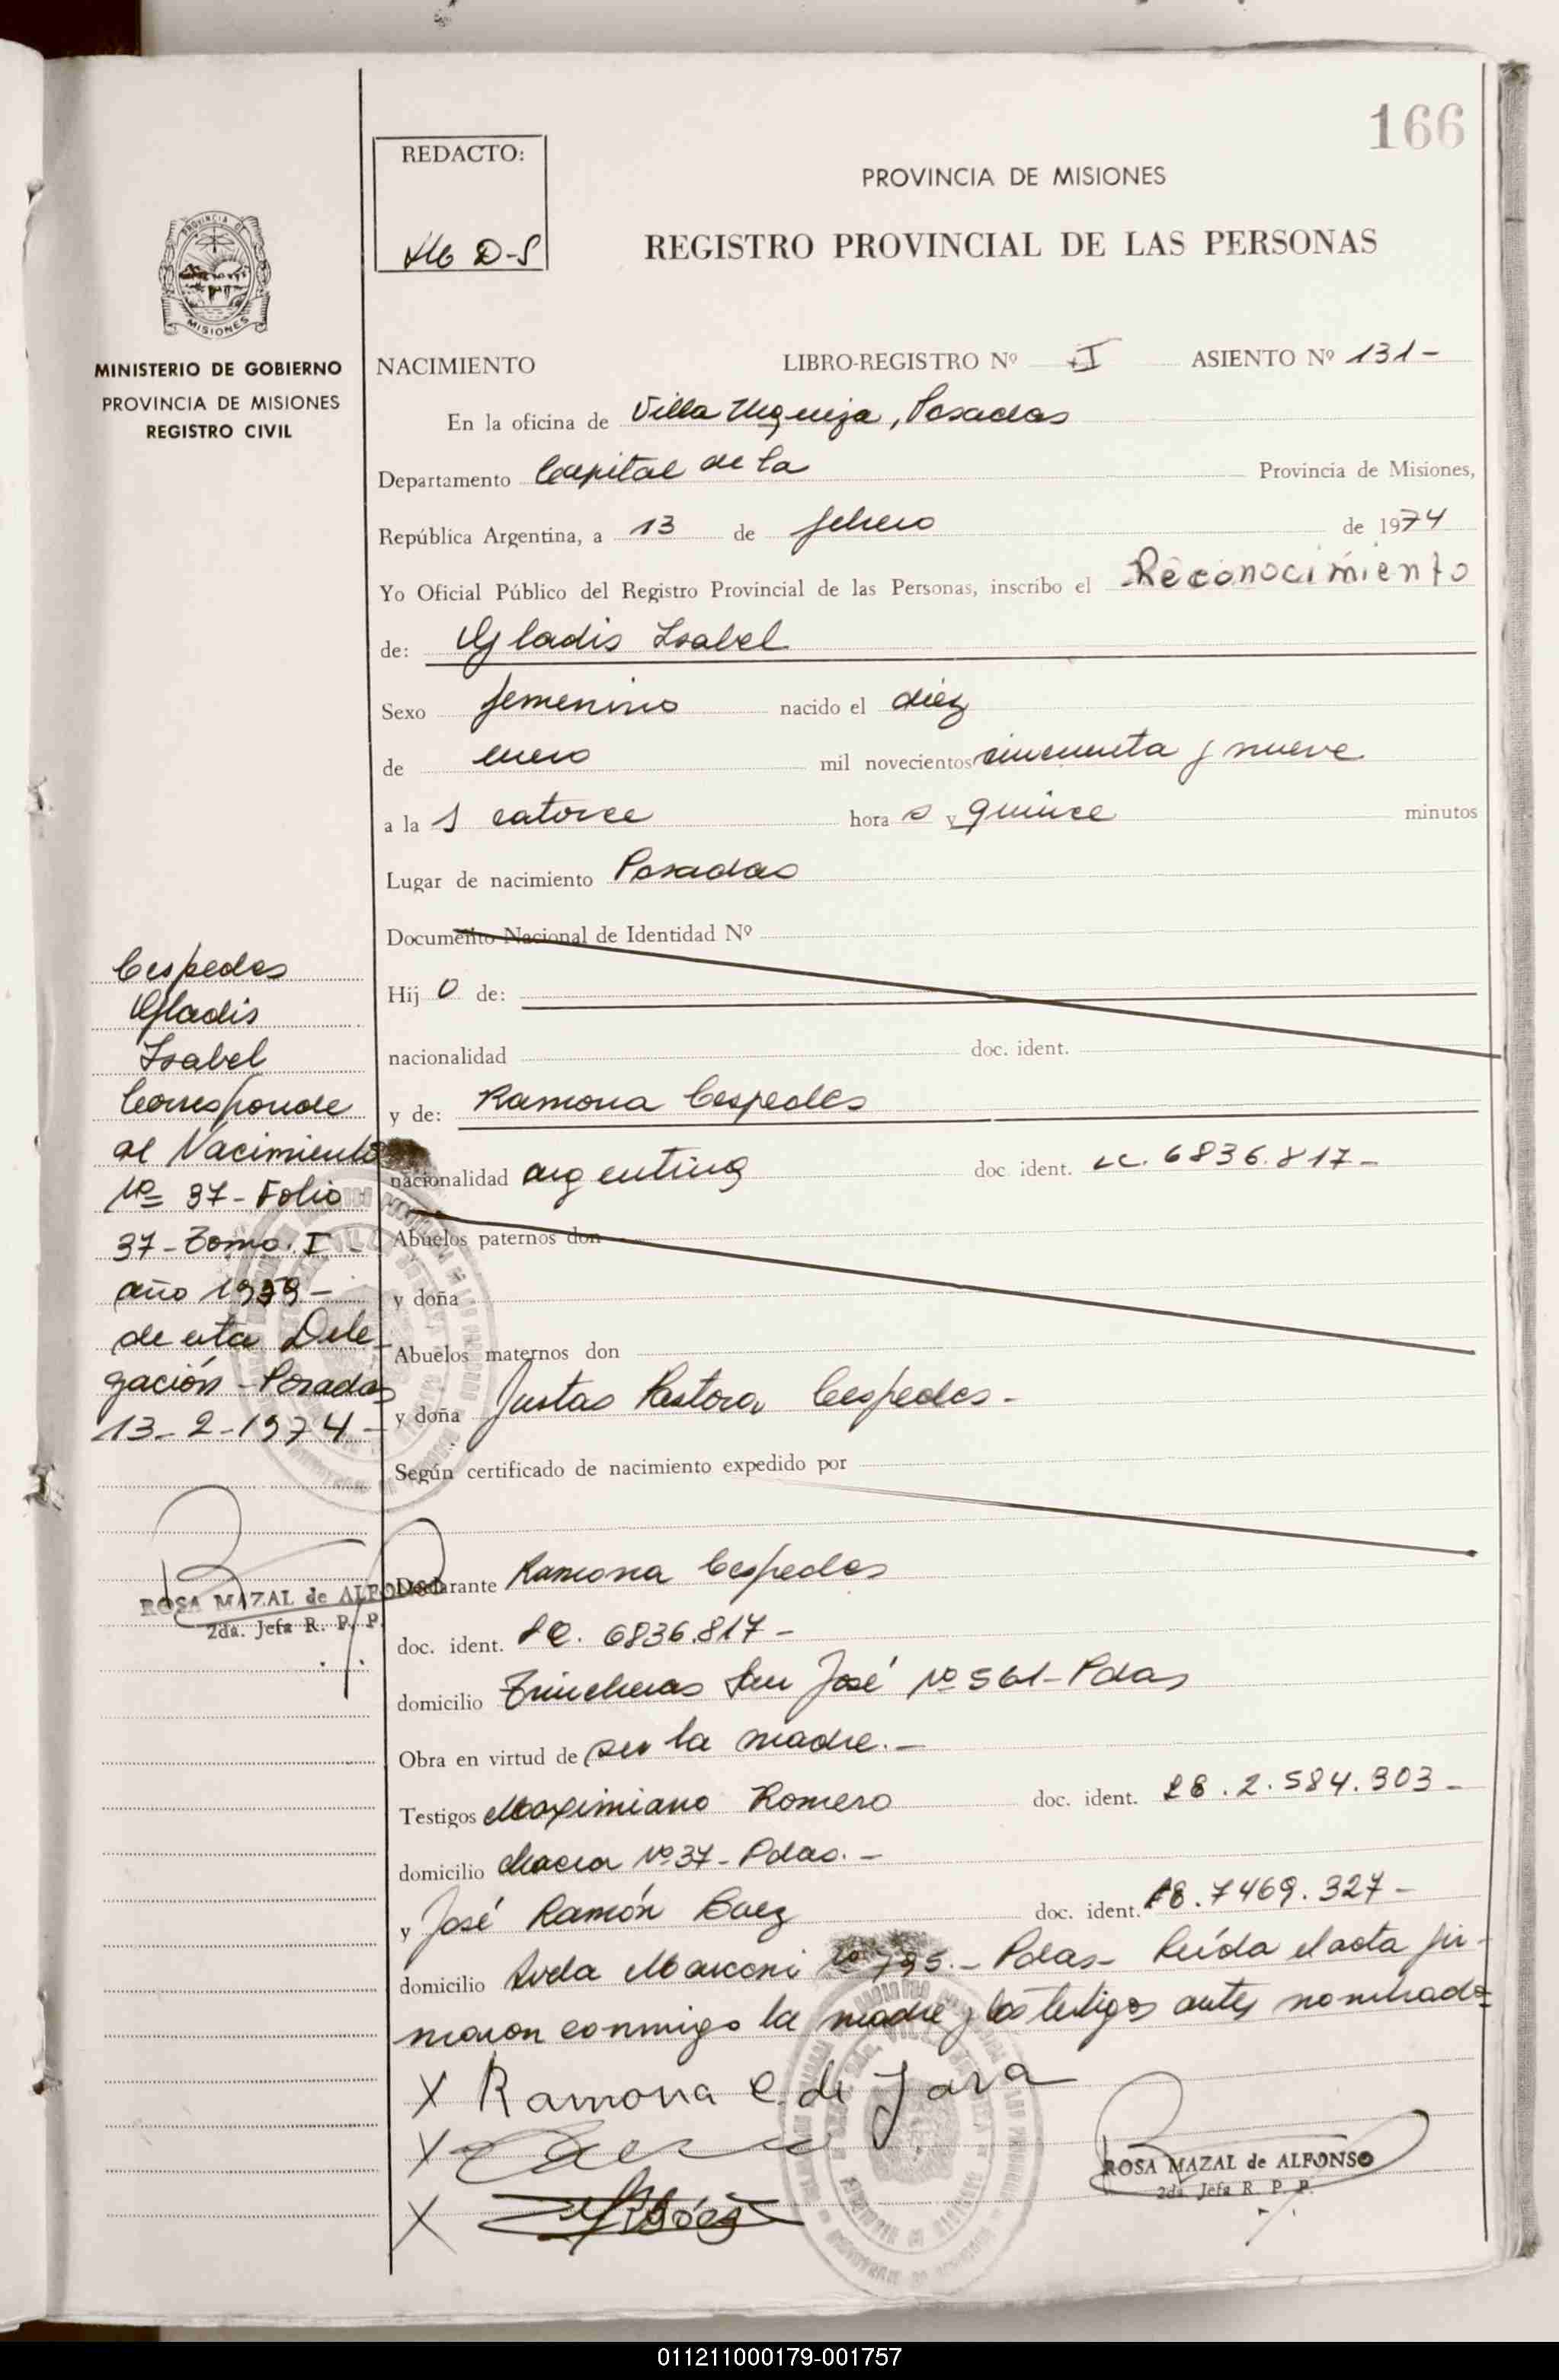 166
REDACTO:
PROVINCIA DE MISIONES
REGISTRO PROVINCIAL DE LAS PERSONAS
MISIONES
MINISTERIO DE GOBIERNO
PROVINCIA DE MISIONES
REGISTRO CIVIL
NACIMIENTO LIBRO-REGISTRO Nº I ASIENTO Nº 131-
En la oficina de Villa Urquiza, Posadas
Departamento Capital de la Provincia de Misiones,
República Argentina, a 13 de febrero de 1974
Yo Oficial Público del Registro Provincial de las Personas, inscribo el Reconocimiento
de: Gladis Isabel
Sexo femenino nacido el diez
de enero mil novecientos cincuenta y nueve
a la s catorce hora s y quince minutos
Lugar de nacimiento Posadas
Documento Nacional de Identidad Nº
Hij o de:
nacionalidad doc. ident.
y de: Ramona Cespedes
nacionalidad argentina doc. ident. LC. 6836.817-
Abuelos paternos don
y doña
Abuelos maternos don
y doña Justas Pastora Cespedes-
Según certificado de nacimiento expedido por
Declarante Ramona Cespedes
doc. ident. LC. 6836.817-
domicilio Trincheras San José Nº 561-Pdas
Obra en virtud de ser la madre.-
Testigos Maximiano Romero doc. ident. 2.584.903-
domicilio Chacra Nº 37- Pdas.-
y José Ramón Baez doc. ident. 7469.327-
domicilio Avda Marconi Nº 795.- Pdas- Leída el acta fir-
maron conmigo la madre y los testigos antes nombrados
X Ramona C. de Jara
X
X
ROSA MAZAL de ALFONSO
2da. Jefa R. P. P.
Cespedes
Gladis
Isabel
Corresponde
al Nacimiento
Nº 37- Folio
37- Tomo I-
año 1959-
de esta Dele-
gación-Posadas
13-2-1974-
ROSA MAZAL de ALFONSO
2da. Jefa R. P. P.
011211000179-001757